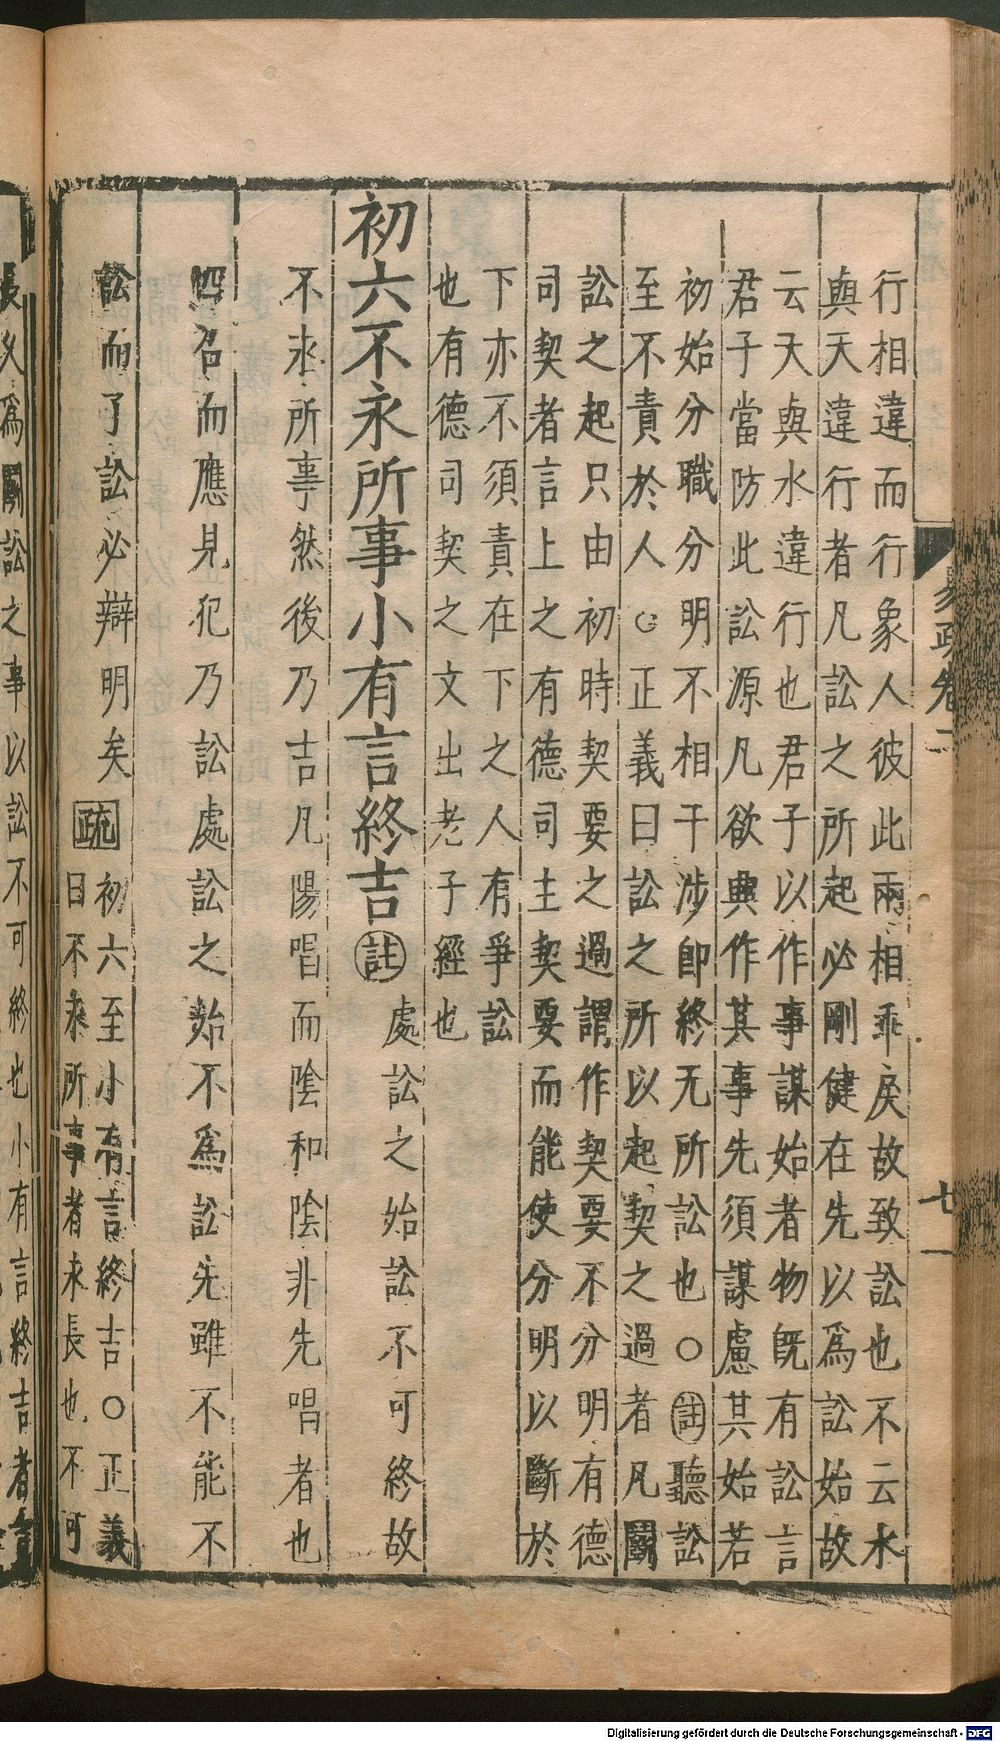 行相違而行象人彼此兩相乖戾故致訟也不云水
與天違行者凡訟之所起必剛健在先以爲訟始故
云天與水違行也君子以作事謀始者物旣有訟言
君子當防此訟源凡欲興作其事先須謀慮其始若
初始分職分明不相干涉卽終无所訟也○註聽訟
至不責於人○正義曰訟之所以起契之過者凡鬭
訟之起只由初時契要之過謂作契要不分明有德
司契者言上之有德司主契要而能使分明以斷於
下亦不須責在下之人有爭訟
也有德司契之文出老子經也
初六不永所事小有言終吉註處訟之始訟不可終故
不永所事然後乃吉凡陽唱而陰和陰非先唱者也
四召而應見犯乃訟處訟之始不爲訟先雖不能不
訟而了訟必辯明矣疏初六至小有言終吉○正義
曰不永所事者永長也不可
易疏卷二
七一
長久爲鬭訟之事以訟不可終也小有言終吉者言
Digitalisierung gefördert durch die Deutsche Forschungsgemeinschaft - DFG